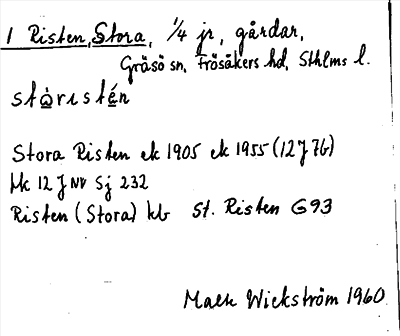 1 Risten, Stora, 1/4 jr, gårdar,
Gräsö sn, Frösåkers hd, Sthlms l.
stòrıstén
Stora Risten ek 1905 ek 1955 (12J 7b)
Hk 12 J NV Sj 232
Risten (Stora) kb St. Risten G93
Wickström 1960